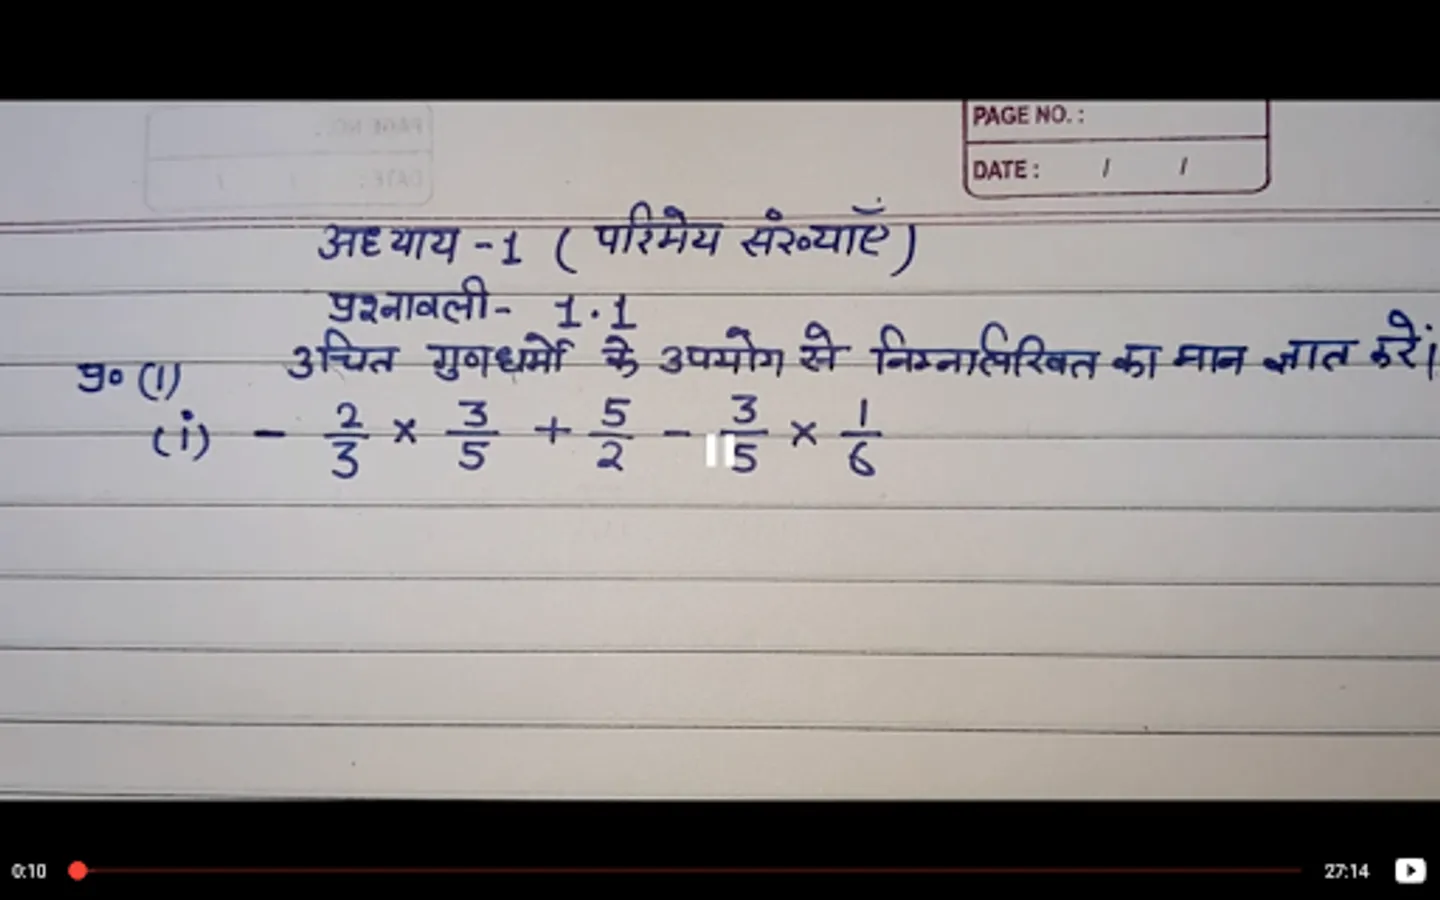 PAGE NO. :
DATE : / /
अध्याय - 1 ( परिमेय संख्याएँ )
प्रश्नावली - 1.1
प्र० (1) उचित गुणधर्मो के उपयोग से निम्नलिखित का मान ज्ञात करें।
(i) - 2/3 × 3/5 + 5/2 - 3/5 × 1/6
0:10 27:14